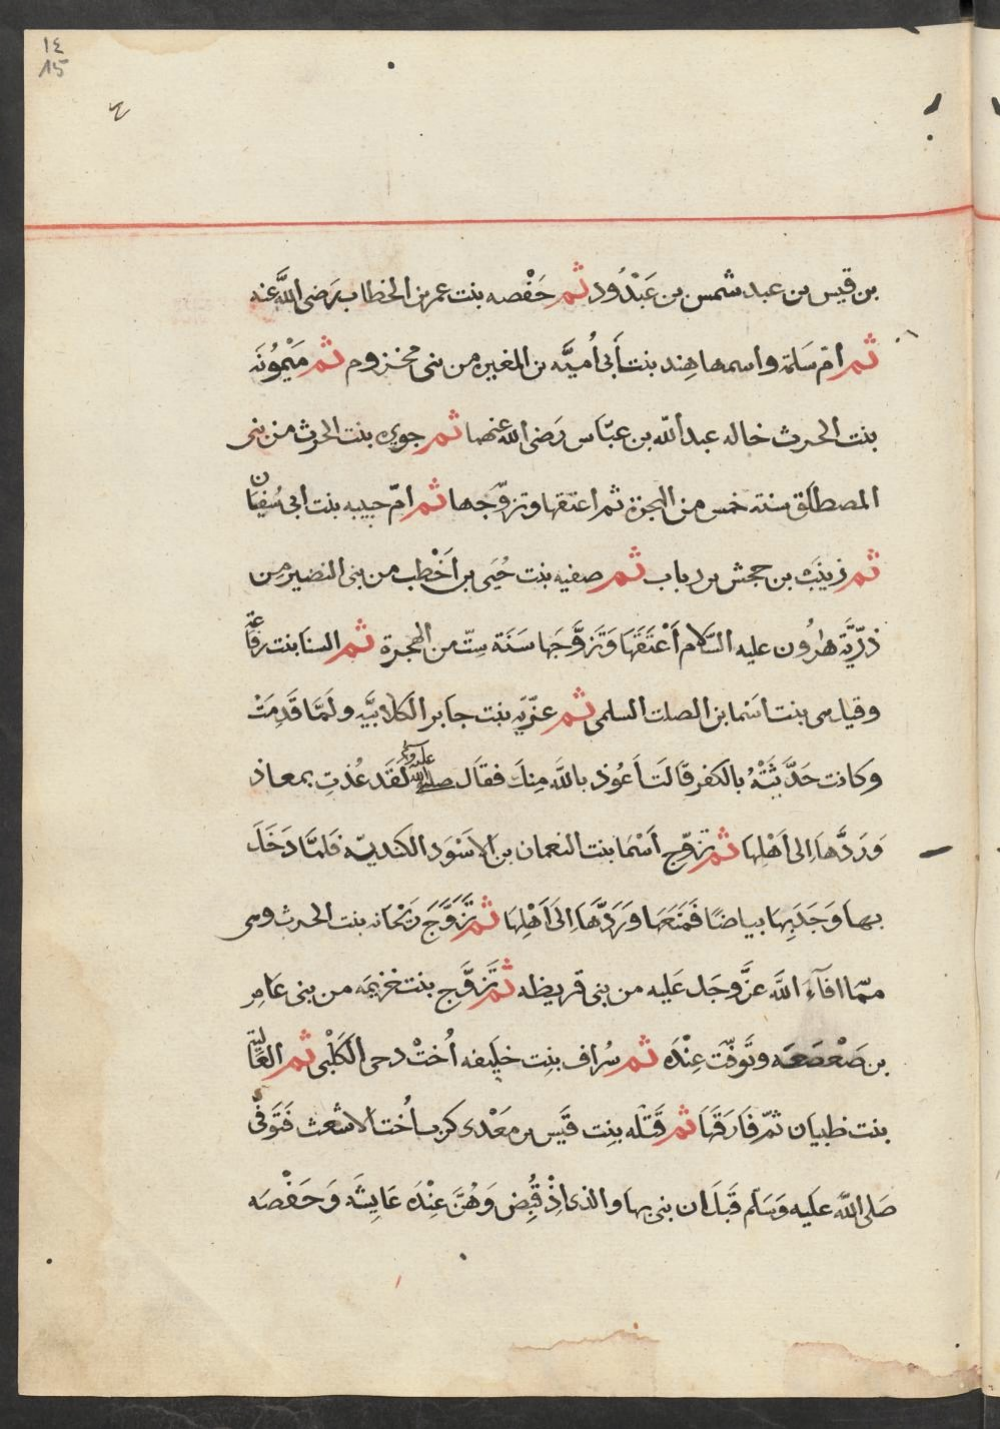 ١٤
١٥
٤
بن قيس بن عبد شمس بن عَبْدُود ثم حَفْصه بنت عمر بن الخطاب رَضى اللَّه عنه
ثم امّ سَلمَة واسمها هِند بنت أَبى أُميَّه بن المغيره من بنى مخزوم ثم مَيْمُونَه
بنت الحرث خاله عبد اللّه بن عبّاس رَضى الله عنهما ثم جويره بنت الحرث من بنى
المصطلَق سنة خمس من الهجرة ثم اعتقها وتزوّجها ثم امّ حبيبه بنت ابى سُفيَان
ثم زينَبْ بن جحش بن رباب ثم صفيه بنت حُيَى بن اَخْطب من بنى النضير من
ذرّيَّة هٰرُون عليه السَّلام أَعْتَقَهَا وَتَزوَّجَها سَنَة سِتّ من الهجرة ثم السنا بنت رفاعة
وقيل هى بنت اسما بن الصلت السلمى ثم عزّيه بنت جابر الكلابيَّه ولَمَّا قَدِمَتْ
وكانت حَدَّ يَثَتْهُ بالكفر قالَت اَعُوذ باللَّه مِنكَ فقال صلى الله عليه وسلم لَقَد عُذتِ بمعاذ
وَرَدَّهَا اِلى اَهْلِهَا ثم تزوّج أَسْمَا بنت النعمان بن الاَسْوَد الكنديّه فلمَّا دَخَلَ
بها وَجَدَ بِهَا بياضًا فَمَنَعَهَا وَرَدَّهَا اِلىَ اَهْلِهَا ثم تَزَوَّجَ رَيْحَانه بنت الحرث وهى
ممّا افآءَ اللَّه عزَّ وجَل عَليه من بنى قريظه ثم تَزوَّج بنت خزيمَه من بنى عَامِر
بن صَعْصَعَه وتَوفّت عِنْدَه ثم سُراف بنِت خليفه أُختْ دحى الكَلْبى ثم العَالية
بنت ظبيان ثمّ فَارَقَهَا ثم قَتْله بنِت قَيَس بن مَعْدى كرب اُخت الاشعث فَتَوَفّى
صَلى اللَّه عَلَيه وَسَلّم قَبَل ان بنى بها والذى اِذْ قُبِض وَهُنَّ عِنْدَه عَايِشَه وَحَفْصَه